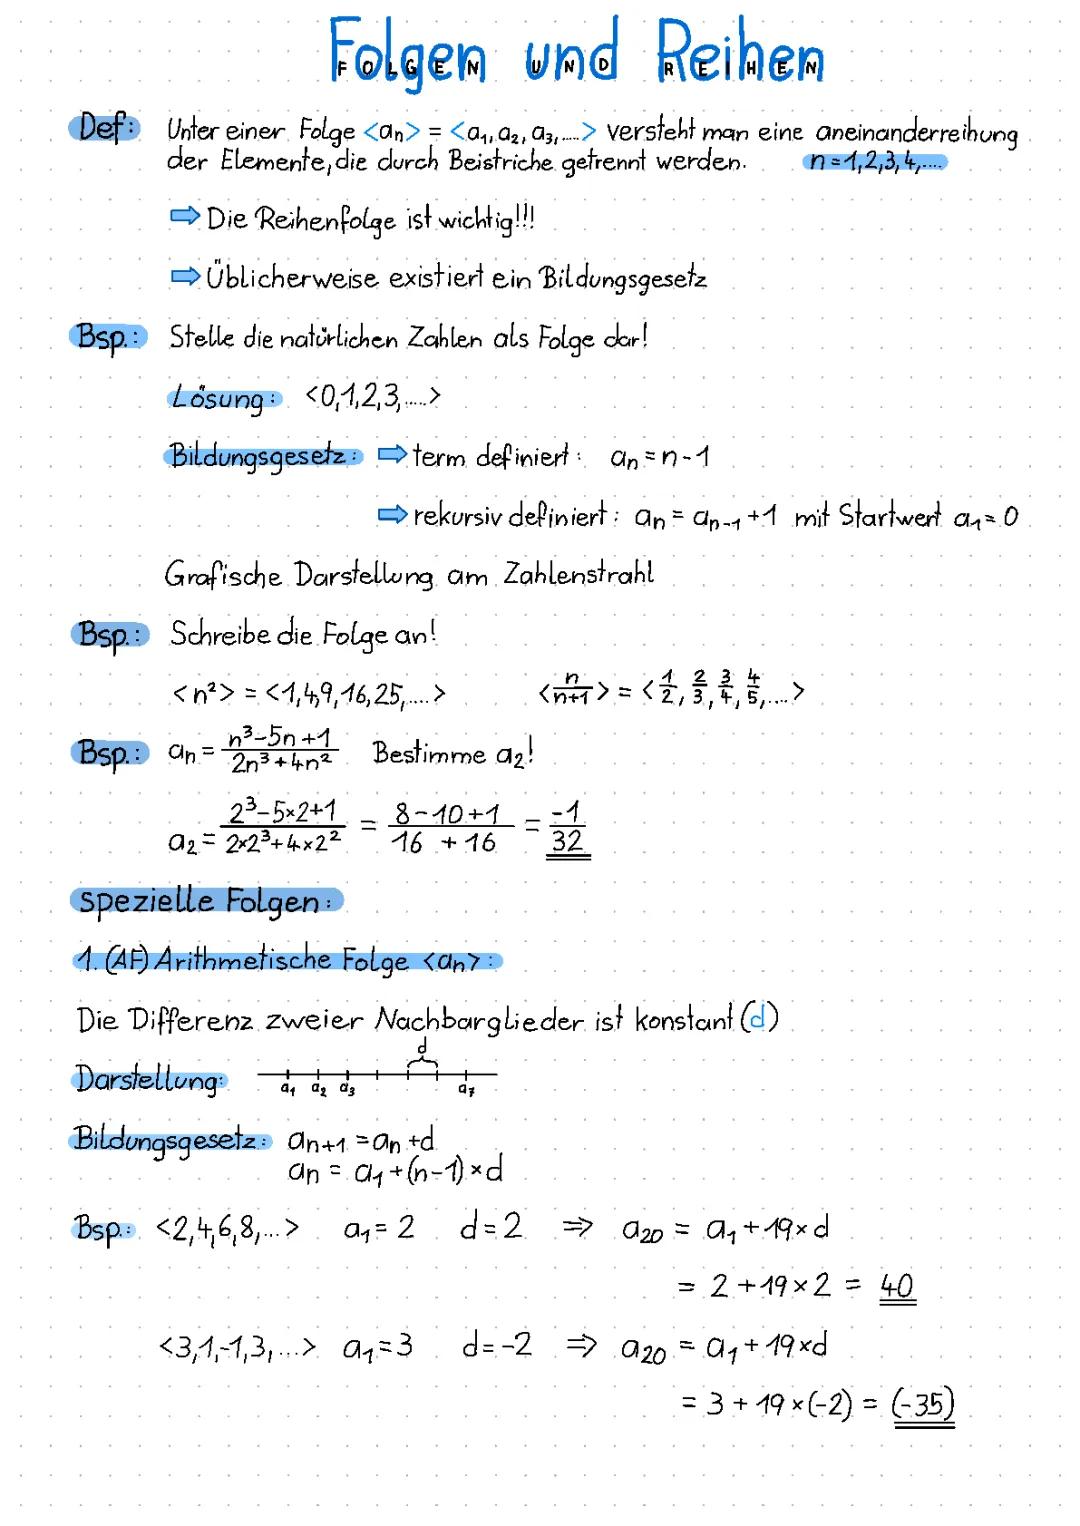 Folgen und Reihen
FOLGEN UND REIHEN
Def: Unter einer Folge <an> = <a₁, a₂, a₃,.....> versteht man eine aneinanderreihung
der Elemente, die durch Beistriche getrennt werden. n=1,2,3,4,....
⇨ Die Reihenfolge ist wichtig!!!
⇨ Üblicherweise existiert ein Bildungsgesetz
Bsp.: Stelle die natürlichen Zahlen als Folge dar!
Lösung: <0,1,2,3,.....>
Bildungsgesetz: ⇨ term definiert: aₙ = n-1
⇨ rekursiv definiert: aₙ = aₙ₋₁ +1 mit Startwert a₁ = 0
Grafische Darstellung am Zahlenstrahl
Bsp.: Schreibe die Folge an!
<n²> = <1,4,9,16,25,....> <n/(n+1)> = <1/2, 2/3, 3/4, 4/5,....>
Bsp.: aₙ = (n³-5n+1)/(2n³+4n²) Bestimme a₂!
a₂ = (2³-5×2+1)/(2×2³+4×2²) = (8-10+1)/(16+16) = -1/32
spezielle Folgen:
1. (AF) Arithmetische Folge <aₙ>:
Die Differenz zweier Nachbarglieder ist konstant (d)
d
Darstellung: a₁ a₂ a₃ a₇
Bildungsgesetz: aₙ₊₁ = aₙ +d
aₙ = a₁ + (n-1) × d
Bsp.: <2,4,6,8,...> a₁ = 2 d = 2 ⇒ a₂₀ = a₁ + 19×d
= 2 + 19 × 2 = 40
<3,1,-1,3,...> a₁ = 3 d = -2 ⇒ a₂₀ = a₁ + 19×d
= 3 + 19 × (-2) = (-35)